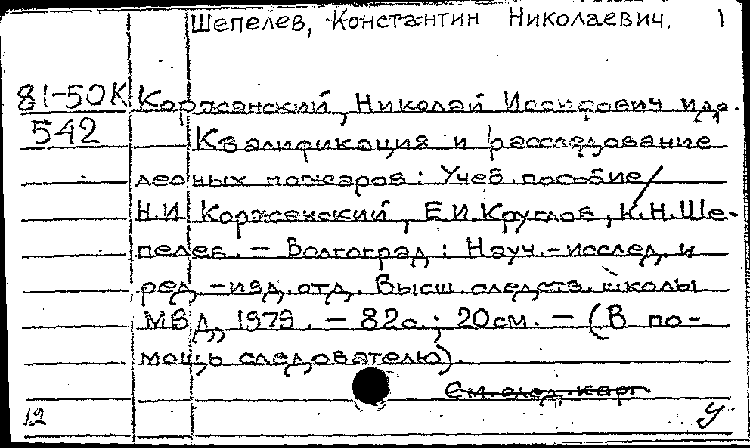 Шепелев, Константин Николаевич. 1
81-50К Коржанский, Николай Иосифович и др.
542 Квалификация и расследование
лесных пожаров: Учеб. пособие /
Н.И. Коржанский, Е.И. Круглов, К.Н. Ше-
пелев. — Волгоград: Науч.-исслед. и
ред.-изд. отд. Высш. следств. школы
МВД, 1979. — 82с.; 20см. — (В по-
мощь следователю).
См. след. карт
12 У